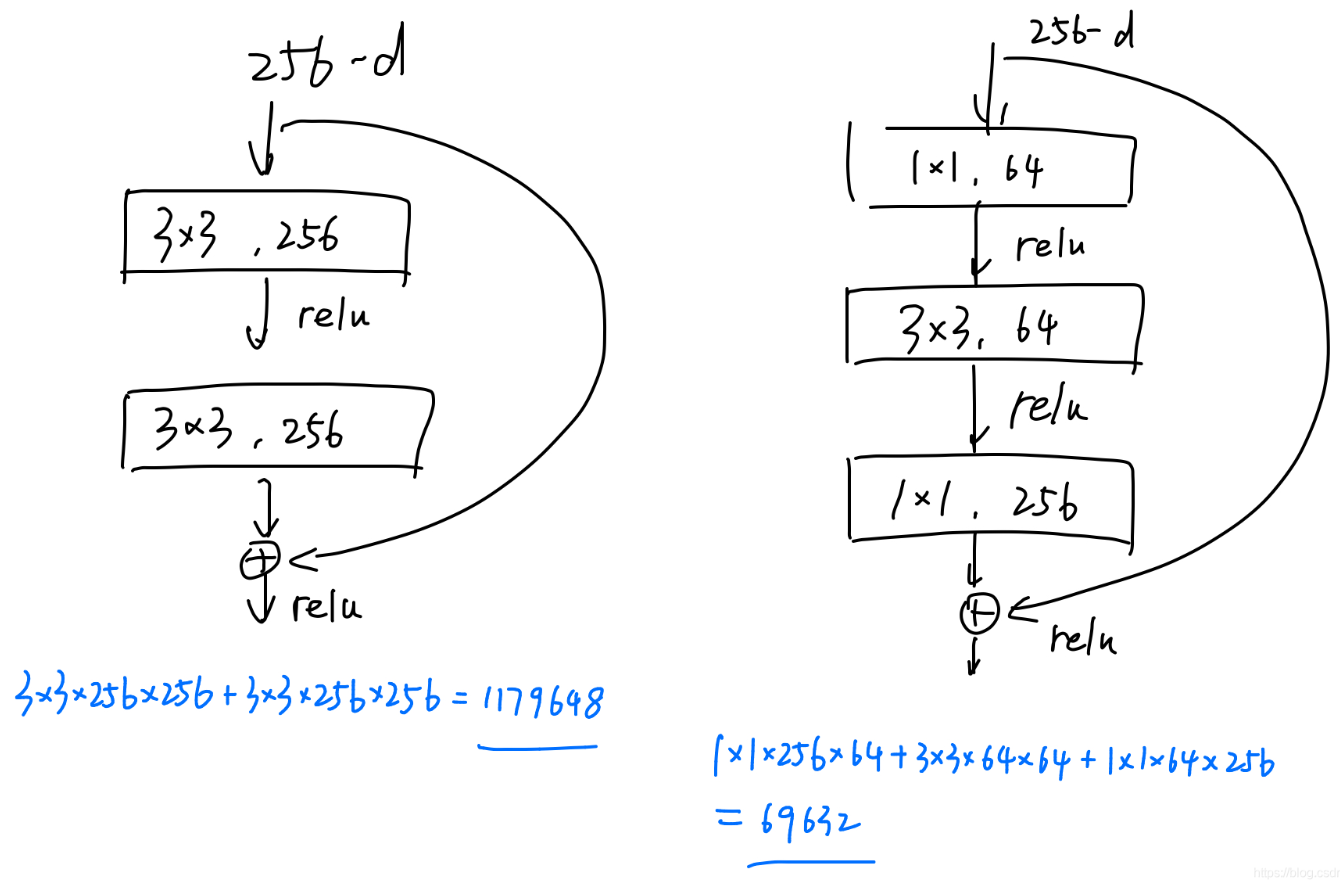 256-d
3×3 , 256
relu
3×3 , 256
+
relu
3×3×256×256+3×3×256×256=1179648
256-d
1×1, 64
relu
3×3, 64
relu
1×1, 256
+
relu
1×1×256×64+3×3×64×64+1×1×64×256
=69632
https://blog.csdn